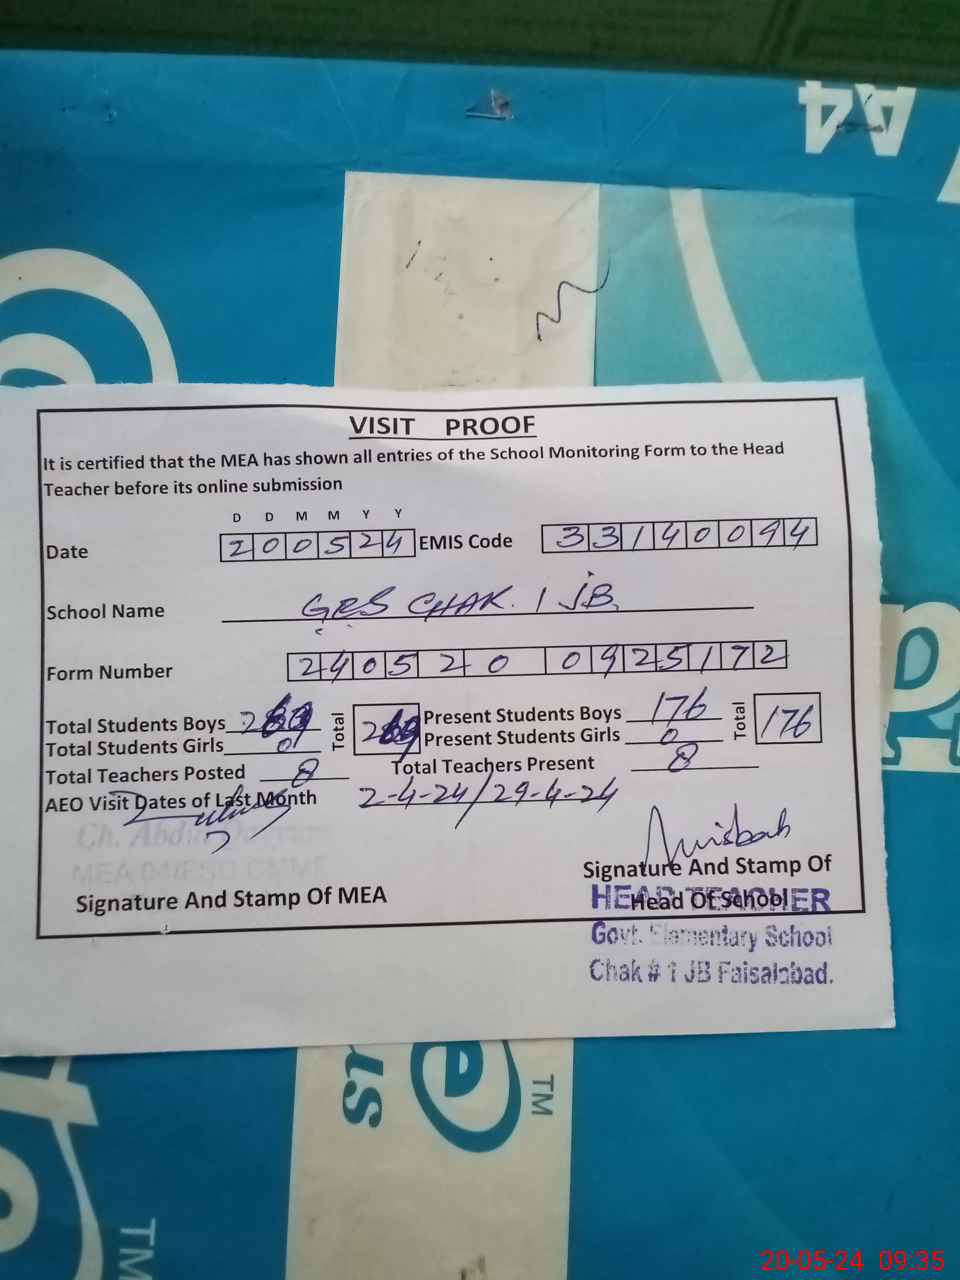 A4
VISIT PROOF
It is certified that the MEA has shown all entries of the School Monitoring Form to the Head
Teacher before its online submission
D D M M Y Y
Date 200524 EMIS Code 33140094
School Name GES CHAK. 1 JB
Form Number 2405200925172
Total Students Boys Total Present Students Boys 176 Total 176
Total Students Girls 0 Present Students Girls 0
Total Teachers Posted 8 Total Teachers Present 8
AEO Visit Dates of Last Month 2-4-24/29-4-24
Ch.
MEA
Signature And Stamp Of MEA
Signature And Stamp Of
Head Of School
HEAD TEACHER
Govt. Elementary School
Chak # 1 JB Faisalabad.
TM
TM
20-05-24 09:35